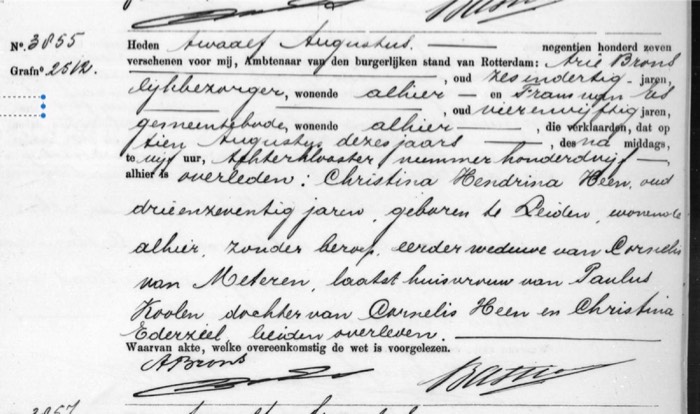 Nº. 3855
Grafnº 2512.
Heden twaalf Augustus. negentien honderd zeven
verschenen voor mij, Ambtenaar van den burgerlijken stand van Rotterdam: Arie Brons
, oud zesendertig jaren,
lijkbezorger, wonende alhier en Frans van Es
, oud vierenvijftig jaren,
gemeentebode, wonende alhier , die verklaarden, dat op
tien Augustus dezes jaars , des na middags,
te vijf uur, Achterklooster nummer honderdvijf ,
alhier is overleden: Christina Hendrina Heen, oud
drieenzeventig jaren, geboren te Leiden, wonende
alhier, zonder beroep, eerder weduwe van Cornelis
van Meteren, laatst huisvrouw van Paulus
Koolen dochter van Cornelis Heen en Christina
Ederzeel beiden overleven.
Waarvan akte, welke overeenkomstig de wet is voorgelezen.
ABrons